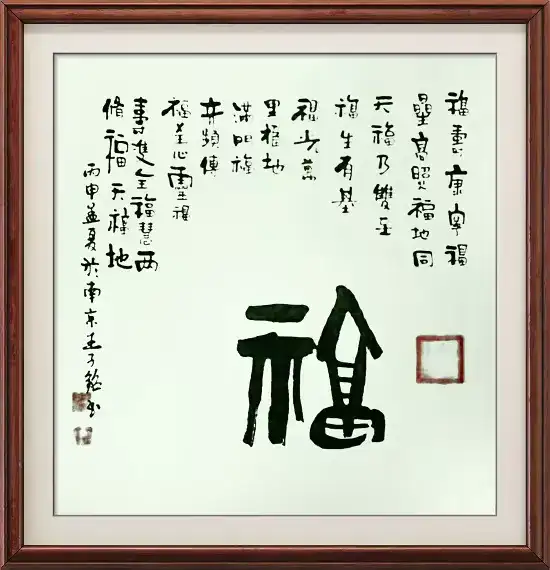 福壽康寧福
星高照福地同
天福乃雙至
福生有基
福光萬
里福地
满門福
頻傳
福至心靈福
壽雙全福慧两
脩福天福地
丙申孟夏於南京王子
福